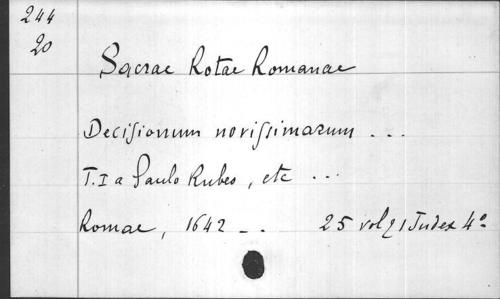 244
20
Sacrae Rotae Romanae
Decisionum novissimarum ...
T. I a Paulo Rubeo, etc ...
Romae, 1642 _ .. 25 vol & 1 Index 4º